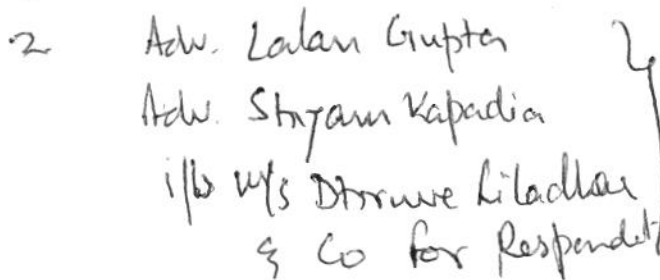 2 Adv. Lalan Gupta
Adv. Shyam Kapadia
i/b M/s Dhruve Liladhar
& Co for Respondet